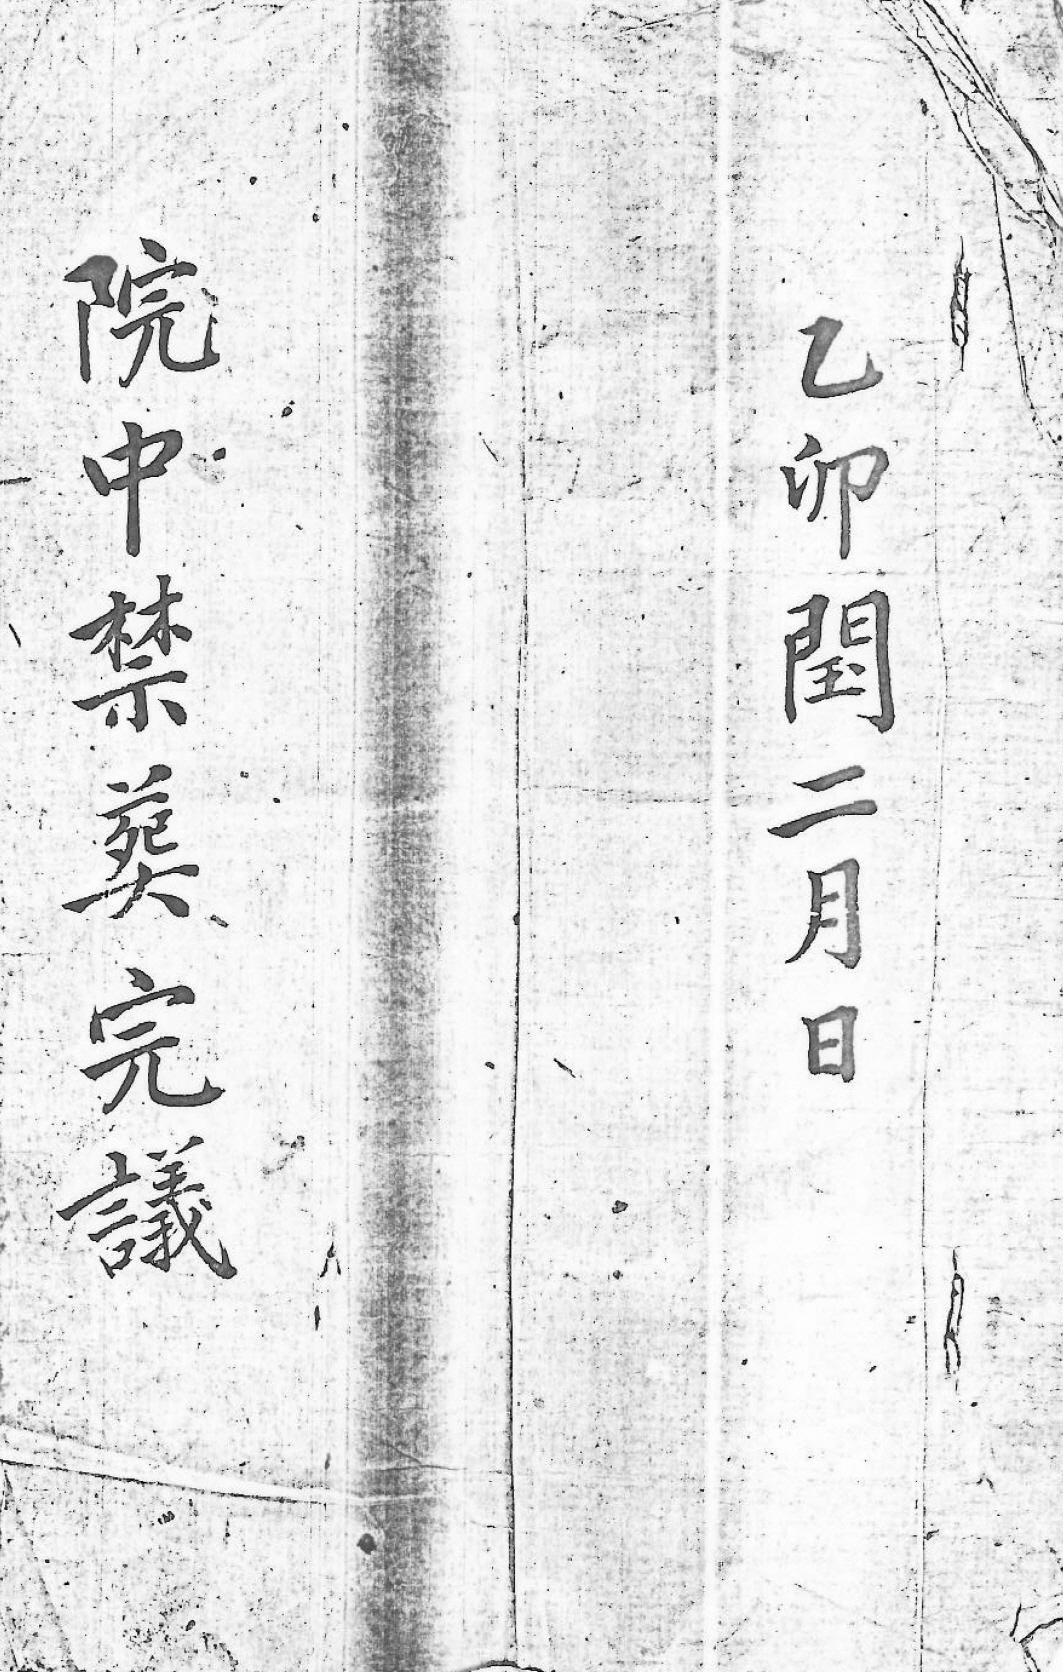 乙卯閏二月日
院中禁葬完議